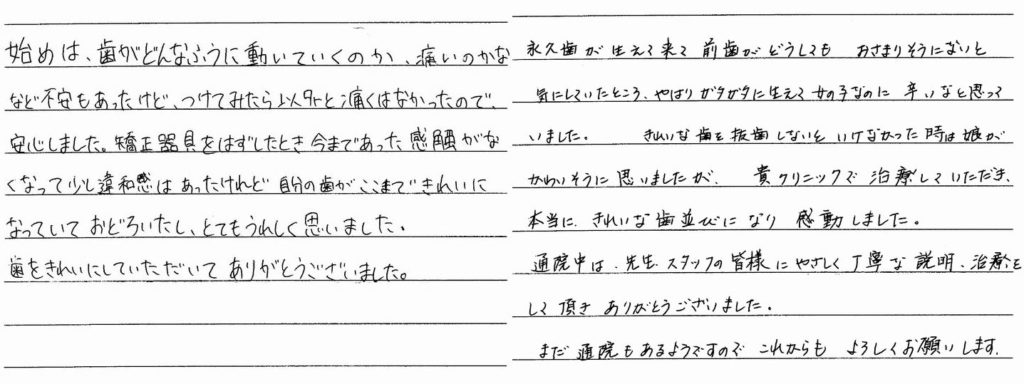 始めは、歯がどんなふうに動いていくのか、痛いのかな
など不安もあったけど、つけてみたら以外と痛くはなかったので、
安心しました。矯正器具をはずしたとき今まであった感触がな
くなって少し違和感はあったけれど自分の歯がここまできれいに
なっていておどろいたし、とてもうれしく思いました。
歯をきれいにしていただいてありがとうございました。
永久歯が生えて来て前歯がどうしてもおさまりそうにないと
気にしていたところ、やはりガタガタに生えて女の子なのに辛いなと思って
いました。きれいな歯を抜歯しないといけなかった時は娘が
かわいそうに思いましたが、貴クリニックで治療していただき、
本当に、きれいな歯並びになり感動しました。
通院中は、先生、スタッフの皆様にやさしく丁寧な説明、治療を
して頂きありがとうございました。
まだ通院もあるようですのでこれからもよろしくお願いします。